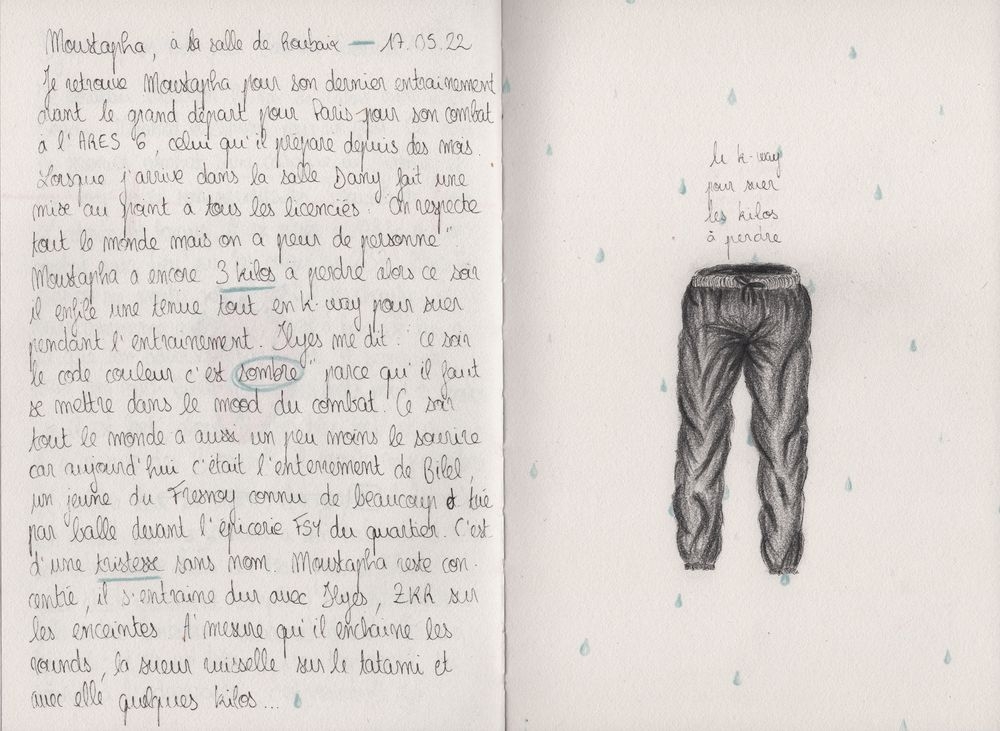 Moustapha, à la salle de Roubaix — 17.05.22
Je retrouve Moustapha pour son dernier entrainement
avant le grand départ pour Paris pour son combat
à l'ARES 6, celui qu'il prépare depuis des mois.
Lorsque j'arrive dans la salle Dany fait une
mise au point à tous les licenciés. "On respecte
tout le monde mais on a peur de personne".
Moustapha a encore 3 kilos à perdre alors ce soir
il enfile une tenue tout en k-way pour suer
pendant l'entrainement. Ilyes me dit : "ce soir
le code couleur c'est sombre" parce qu'il faut
se mettre dans le mood du combat. Ce soir
tout le monde a aussi un peu moins le sourire
car aujourd'hui c'était l'enterrement de Bilel,
un jeune du Fresnoy connu de beaucoup & tué
par balle devant l'épicerie FSY du quartier. C'est
d'une tristesse sans nom. Moustapha reste con-
centré, il s'entraine dur avec Ilyes, ZKR sur
les enceintes. A mesure qu'il enchaine les
rounds, la sueur ruisselle sur le tatami et
avec elle quelques kilos...
le k-way
pour suer
les kilos
à perdre